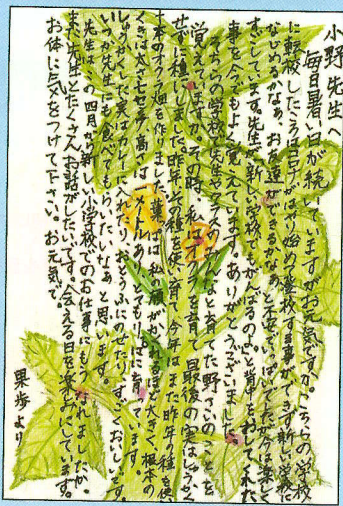 小野先生へ
毎日暑い日が続いていますがお元気ですか。こちらの学校
に転校したころコロナがはやり始めて登校する事ができず新しい学校に
なじめるかな、お友達ができるかなあと不安でいっぱいでしたが今は楽しく
すごしています。先生が「新しい学校でもがんばるのよ」と背中をおしてくれた
事を今でもよく覚えています。ありがとうございました。
そちらの学校で先生やクラスのみんなと育てた野さいのことを
覚えていますか。その時、私はオクラを育て最後の実はしゅうかく
せずに種にしました。昨年その種を使い育て今年はまた昨年の種を使い
十本のオクラ畑を作りました。葉っぱは私の顔がかくれるほど大きく、根本の
くきは太い七センチ、高さは一メートルありとてもりっぱに育っています。
しゅうかくした実はカレーに入れたりおとうふにのせたりすごくおいしいです。
いつか先生にも食べてもらいたいなあと思います。
先生はこの四月から新しい小学校でのお仕事にもうなれましたか。
また先生とたくさんお話がしたいです。会える日を楽しみにしています。
お体に気をつけて下さい。お元気で。
果歩より